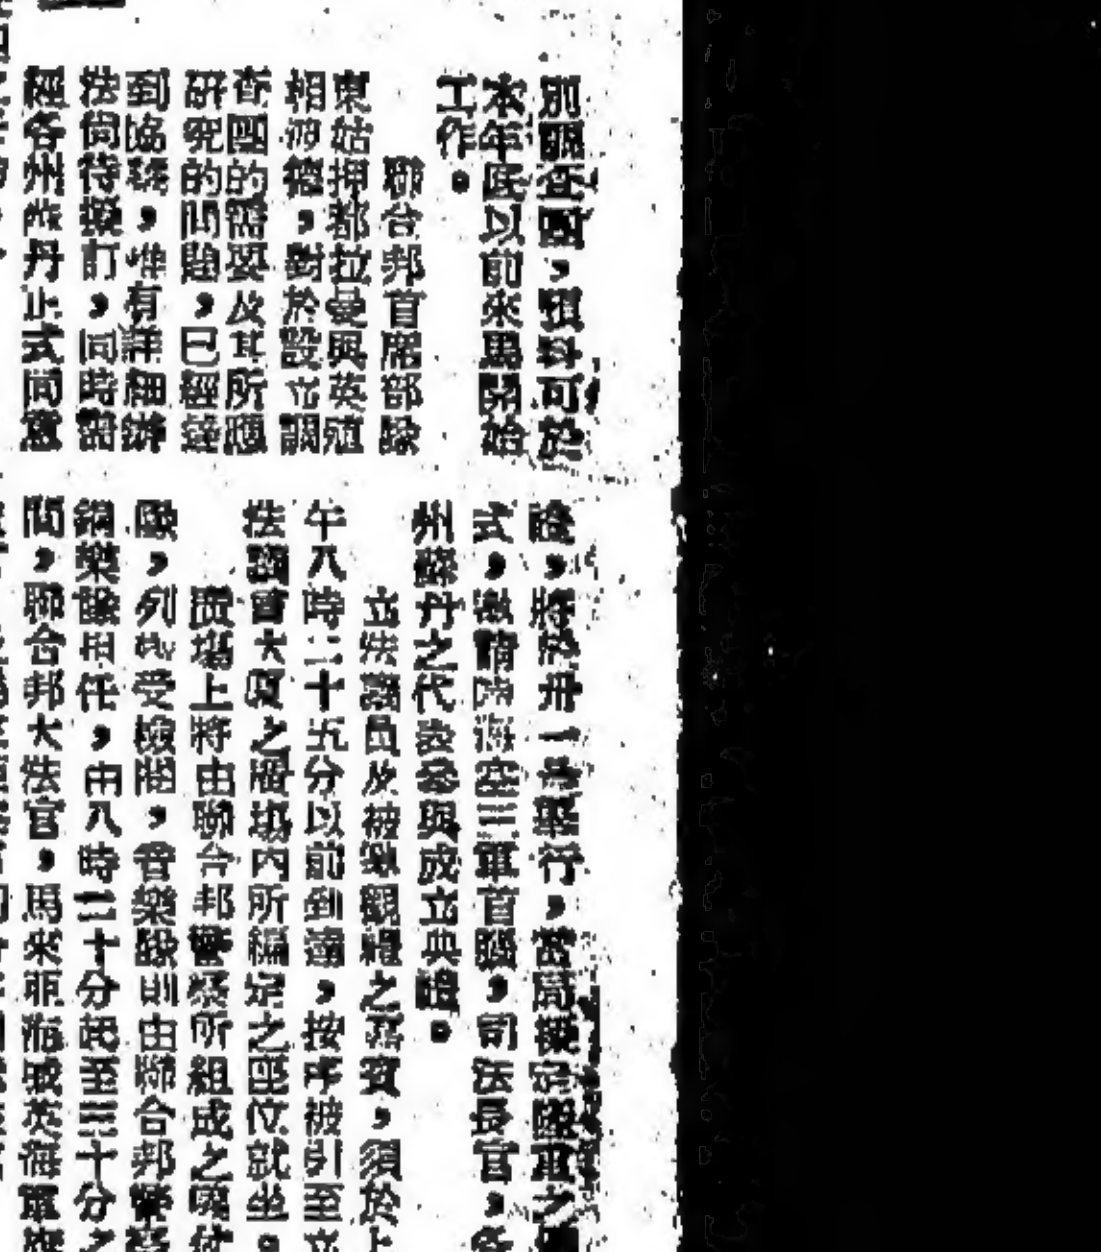 別調查團，預料可於
本年底以前來馬開始
工作。
聯合邦首席部長
東姑押都拉曼與英殖
相波德，對於設立調
查團的需要及其所應
研究的問題，已經達
到協議，惟有詳細辦
法尚待擬訂，同時需
經各州蘇丹正式同意
將於卅一日舉行，當局擬定隆重之
式，邀請陸海空三軍首腦，司法長官，各
州蘇丹之代表參與成立典禮。
立法議員及被邀觀禮之嘉賓，須於上
午八時二十五分以前到達，按序被引至立
法議會大廈之廣場內所編定之座位就坐。
廣場上將由聯合邦警察所組成之儀仗
隊，列隊受檢閱，音樂隊則由聯合邦警察
銅樂隊担任，由八時三十分起至三十分之
間，聯合邦大法官，馬來亞海域英海軍